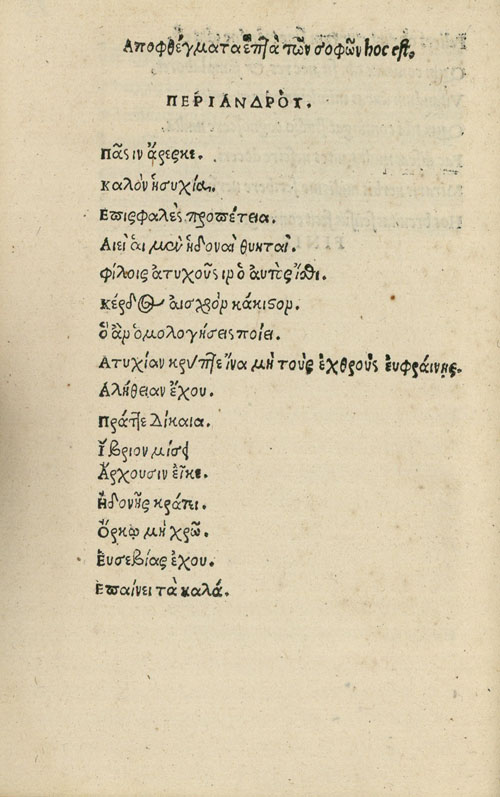 Αποφθέγματα ἑπτὰ τῶν σοφῶν hoc est.
ΠΕΡΙΑΝΔΡΟΥ.
πᾶσιν ἄρεσκε.
καλὸν ἡσυχία.
Επισφαλὲς προπέτεια.
Αιεὶ ἁι μὲν ἡδοναὶ θνηταί.
φίλοις ἀτυχοῦσιν ὁ ἀυτὸς ἴσθι.
κέρδος ἀισχρὸν κάκιστον.
ὃ ἂν ὁμολογήσεις ποίει.
Ατυχίαν κρύπτε ἵνα μὴ τοὺς ἐχθροὺς ἐυφραίνῃς.
Αλήθειαν ἔχου.
πρᾶττε Δίκαια.
ἵβριον μίσει
Ἄρχουσιν εἶκε.
Ηδονῆς κράτει.
Ὅρκῳ μὴ χρῶ.
Ευσεβίας ἔχου.
Επαίνει τὰ καλά.